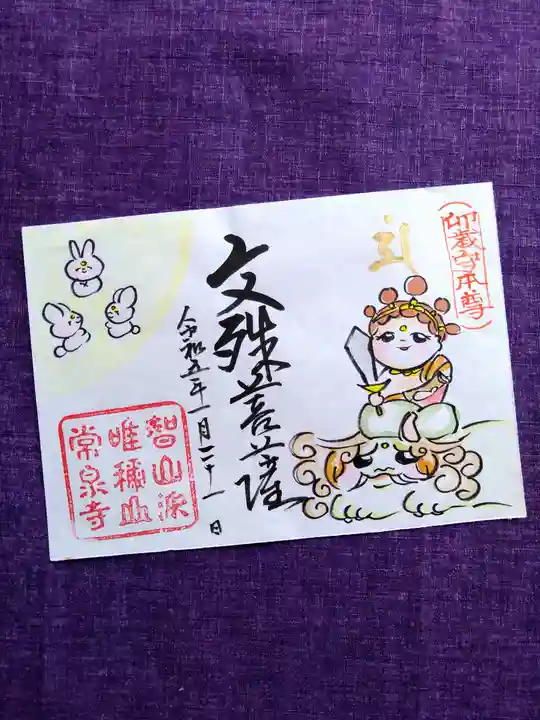 卯歳守本尊
文殊菩薩
令和五年一月二十一日
智山派
唯穪山
常泉寺